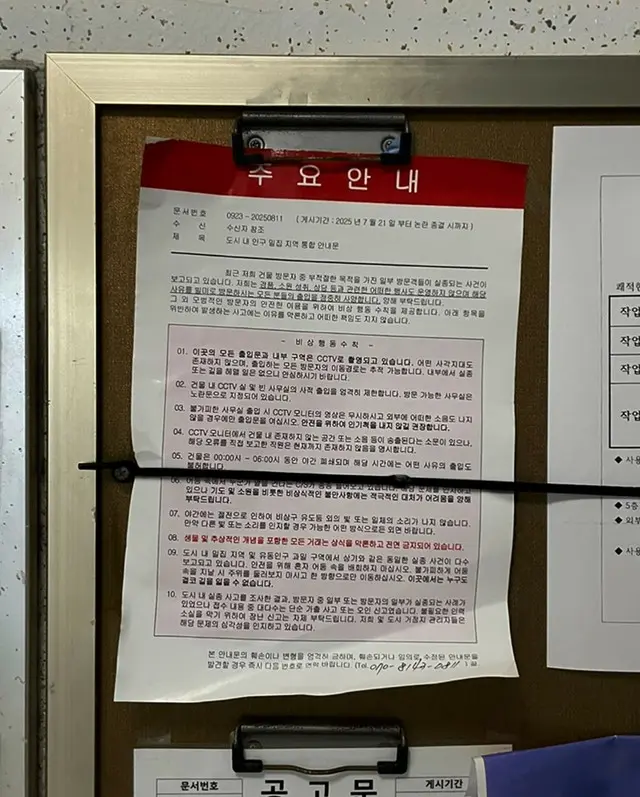 주 요 안 내
문서번호 0923 - 20250811 ( 게시기간 : 2025 년 7 월 21 일 부터 논란 종결 시까지 )
수 신 수신자 참조
제 목 도시 내 인구 밀집 지역 통합 안내문
최근 저희 건물 방문자 중 부적절한 목적을 가진 일부 방문객들이 실종되는 사건이
보고되고 있습니다. 저희는 경품, 소원 성취, 상담 등과 관련한 어떠한 행사도 운영하지 않으며 해당
사유를 빌미로 방문하시는 모든 분들의 출입을 정중히 사양합니다. 양해 부탁드립니다.
그 외 모범적인 방문자의 안전한 이용을 위하여 비상 행동 수칙을 제공합니다. 아래 항목을
위반하여 발생하는 사고에는 이유를 막론하고 어떠한 책임도 지지 않습니다.
- 비상행동수칙 -
01. 이곳의 모든 출입문과 내부 구역은 CCTV로 촬영되고 있습니다. 어떤 사각지대도
존재하지 않으며, 출입하는 모든 방문자의 이동경로는 추적 가능합니다. 내부에서 실종
또는 길을 헤맬 일은 없으니 안심하시기 바랍니다.
02. 건물 내 CCTV 실 및 빈 사무실의 사적 출입을 엄격히 제한합니다. 방문 가능한 사무실은
노란문으로 지정되어 있습니다.
03. 불가피한 사무실 출입 시 CCTV 모니터의 영상은 무시하시고 외부에 어떠한 소음도 나지
않을 경우에만 출입문을 여십시오. 안전을 위하여 인기척을 내지 않길 권장합니다.
04. CCTV 모니터에서 건물 내 존재하지 않는 공간 또는 소음 등이 송출된다는 소문이 있으나,
해당 오류를 직접 보고한 직원은 현재까지 존재하지 않음을 명시합니다.
05. 건물은 00:00시 - 06:00시 동안 야간 폐쇄되며 해당 시간에는 어떤 사유의 출입도
불허합니다.
06. 어둠 속에서 누군가 문제를 인지하고
있으나 기도 및 소원을 비롯한 비상식적인 불안사항에는 적극적인 대처가 어려움을 양해
부탁드립니다.
07. 야간에는 절전으로 인하여 비상구 유도등 외의 빛 또는 일체의 소리가 나지 않습니다.
만약 다른 빛 또는 소리를 인지할 경우 가능한 어떤 방식으로든 외면 바랍니다.
08. 생물 및 추상적인 개념을 포함한 모든 거래는 상식을 막론하고 전면 금지되어 있습니다.
09. 도시 내 밀집 지역 및 유동인구 과밀 구역에서 상기와 같은 동일한 실종 사건이 다수
보고되고 있습니다. 안전을 위해 혼자 어둠 속을 배회하지 마십시오. 불가피하게 어둠
속을 지날 시 주위를 둘러보지 마시고 한 방향으로만 이동하십시오. 이곳에서는 누구도
결코 길을 잃을 수 없습니다.
10. 도시 내 실종 사고를 조사한 결과, 방문자 중 일부 또는 방문자의 일부가 실종되는 사례가
있었으나 접수 내용 중 대다수는 단순 가출 사고 또는 오인 신고였습니다. 불필요한 인력
소실을 막기 위하여 장난 신고는 자제 부탁드립니다. 저희 및 도시 거점지 관리자들은
해당 문제의 심각성을 인지하고 있습니다.
본 안내문의 훼손이나 변형을 엄격히 금하며, 훼손되거나 임의로 수정된 안내문을
발견할 경우 즉시 다음 번호로 연락 바랍니다. (Tel. 070-8142-0811 )
쾌적한
작업
작업
작업
작업
◆ 사용
◆ 5층
◆ 외부
◆ 사용
문서번호 공 고 문 게시기간